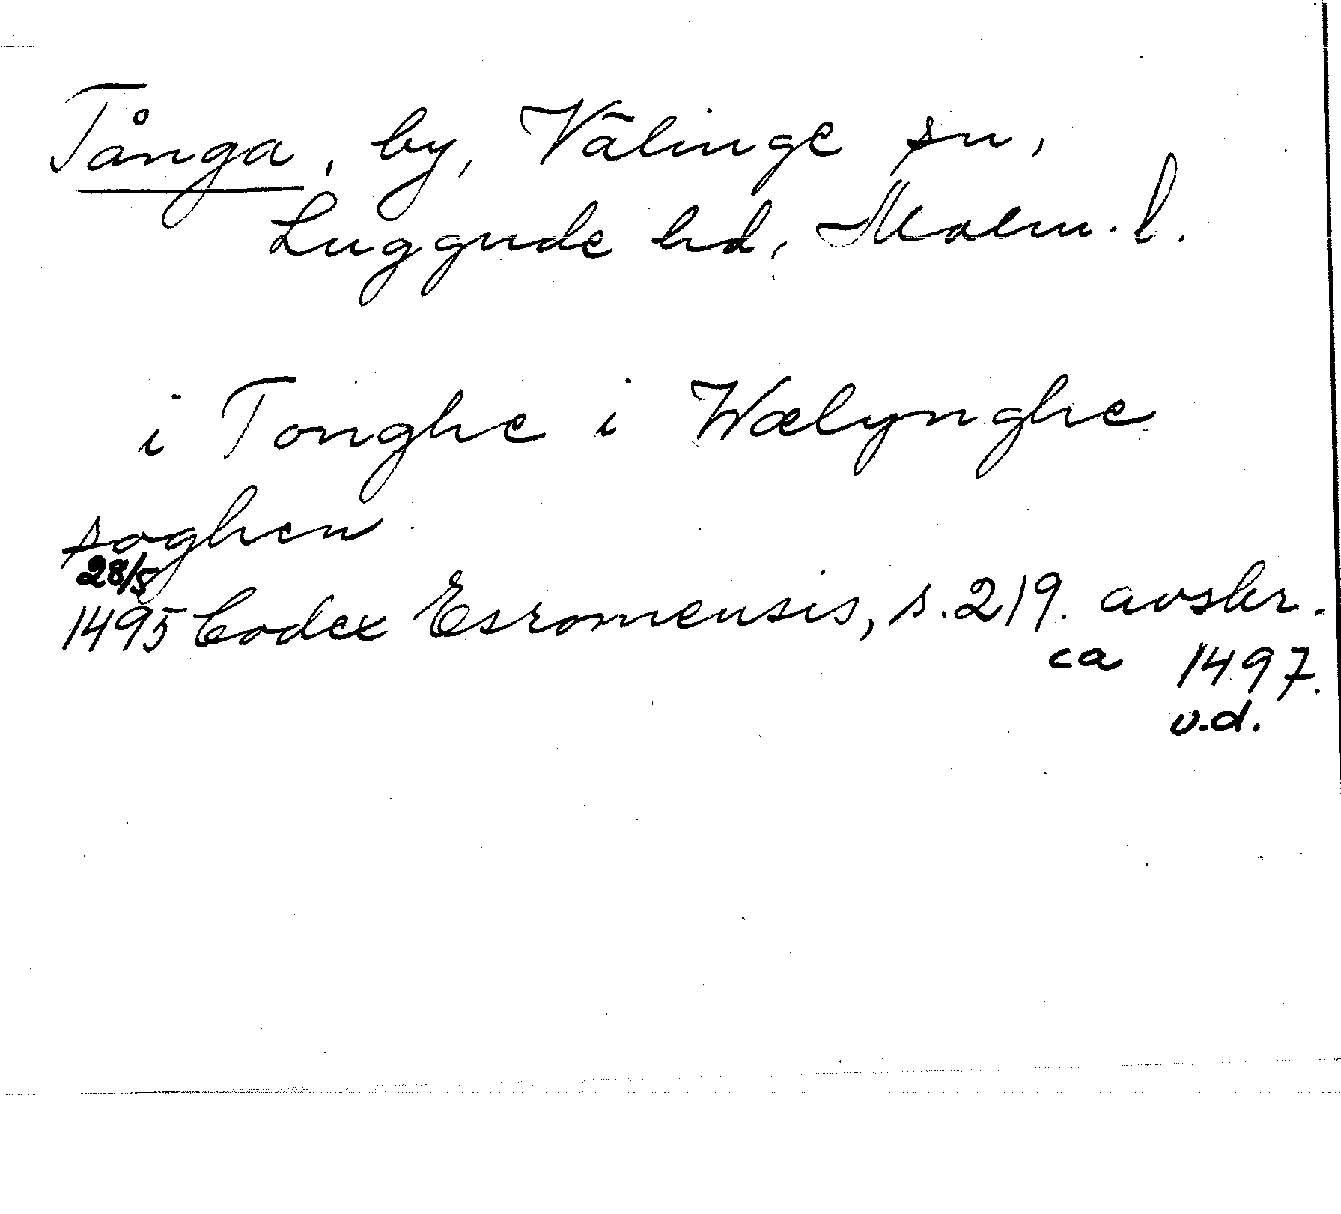 Tånga, by, Välinge sn,
Luggude hd, Malm. l.
i Tonghe i Wælynghe
soghen
28/5
1495 Codex Esromensis, s. 219. avskr.
ca 1497.
o.d.